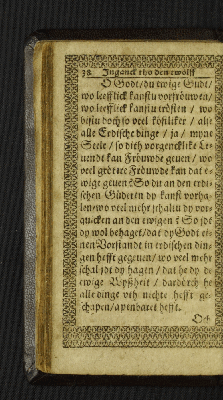 38 Inganck tho den twölff
O Godt / du ewige Gudt /
wo leefflick kanstu vorfröuwen /
wo leefflick kanstu trösten / wo
bistu doch so veel köstliker / alse
alle Erdische dinge / ja / myne
Seele / so dith vorgencklike Le-
uendt kan Fröuwde geuen / wo
veel gröttere Fröuwde kan dat e-
wige geuen? So du an den erdi-
schen Güderen dy kanst vorha-
len / wo veel mehr schaltu dy vor-
quicken an den ewigen? So ydt
dy wol behaget / dat dy Godt ei-
nen Vorstandt in erdischen din-
gen hefft gegeuen / wo veel mehr
schal ydt dy hagen / dat he dy de
ewige Wyßheit / dardörch he
alle dinge vth nichte hefft ge-
schapen / apenbaret hefft.